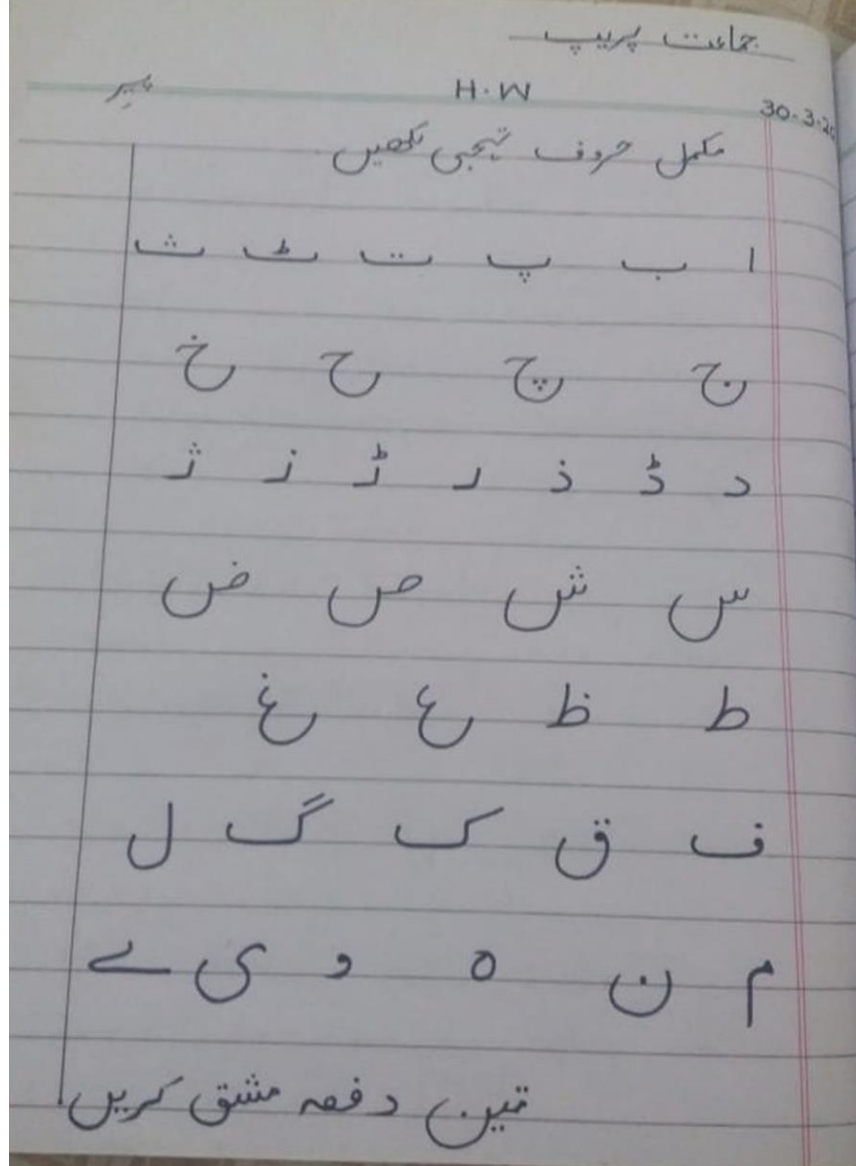 جماعت پریپ
30-3-20 H.W پیر
مکمل حروف تہجی لکھیں
ا ب پ ت ٹ ث
ج چ ح خ
د ڈ ذ ر ڑ ز ژ
س ش ص ض
ط ظ ع غ
ف ق ک گ ل
م ن ہ و ی ے
تین دفعہ مشق کریں